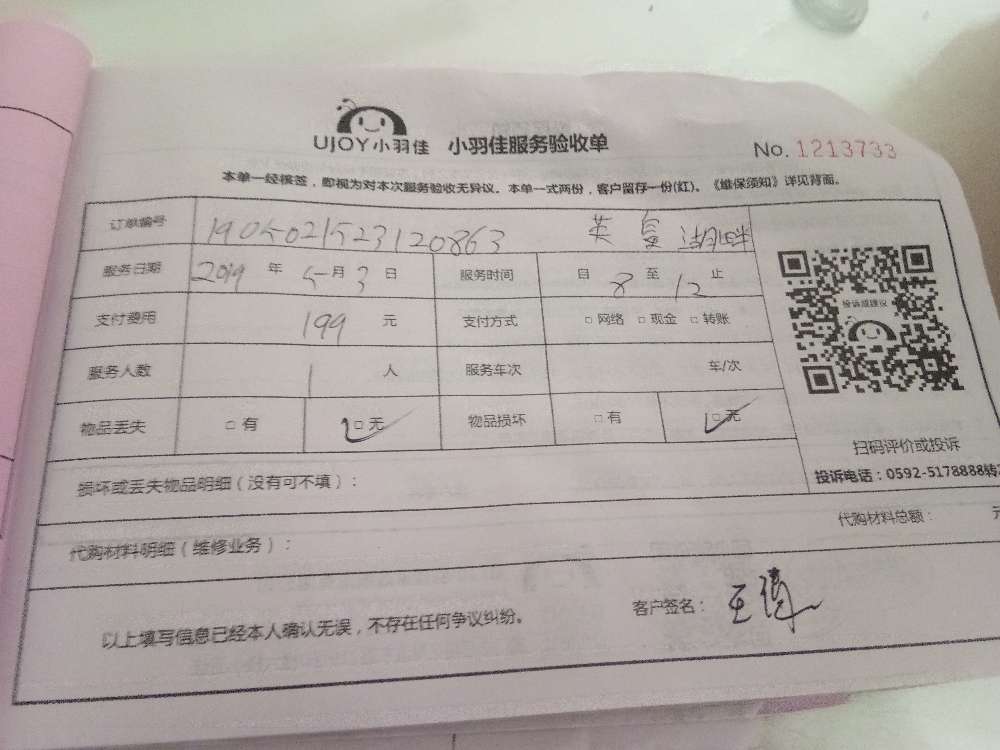 UJOY小羽佳 小羽佳服务验收单 No. 1213733
本单一经核签，即视为对本次服务验收无异议。本单一式两份，客户留存一份(红)。《维保须知》详见背面。
订单编号 1905021523120863 英 湖畔
服务日期 2019 年 5 月 3 日 服务时间 自 8 至 12 止
支付费用 199 元 支付方式 □ 网络 □ 现金 □ 转账
服务人数 1 人 服务车次 车/次
物品丢失 □ 有 □ 无 物品损坏 □ 有 □ 无
投诉或建议
扫码评价或投诉
投诉电话：0592-5178888转
损坏或丢失物品明细（没有可不填）：
代购材料明细（维修业务）： 代购材料总额： 元
以上填写信息已经本人确认无误，不存在任何争议纠纷。 客户签名： 王